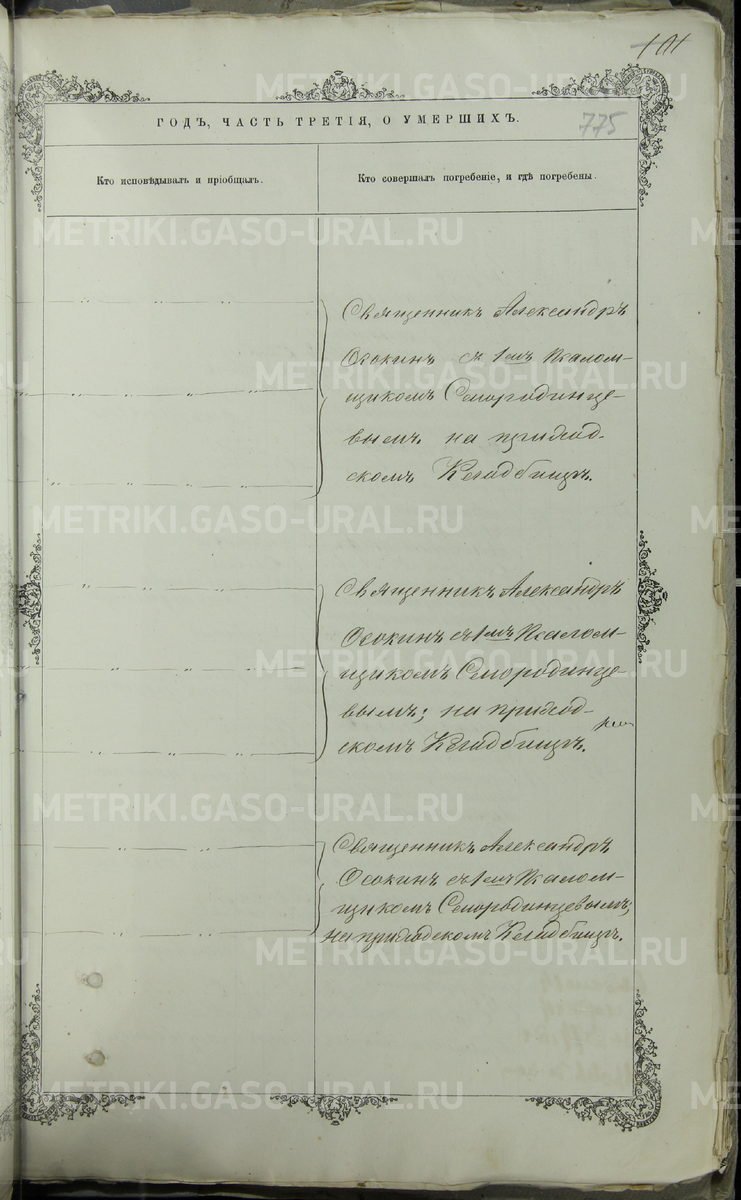 101
ГОДЪ, ЧАСТЬ ТРЕТІЯ, О УМЕРШИХЪ.
775
Кто исповѣдывалъ и пріобщалъ.
Кто совершалъ погребеніе, и гдѣ погребены.
Священникъ Александръ
Осокинъ съ 1мъ Псалом-
щикомъ Смородинце-
вымъ. на приход-
скомъ Кладбищѣ.
Священникъ Александръ
Осокинъ съ 1мъ Псалом-
щикомъ Смородинце-
вымъ; на приход-
скомъ Кладбищѣ.
Священникъ Александръ
Осокинъ съ 1мъ Псалом-
щикомъ Смородинцевымъ;
на приходскомъ Кладбищѣ.
METRIKI.GASO-URAL.RU